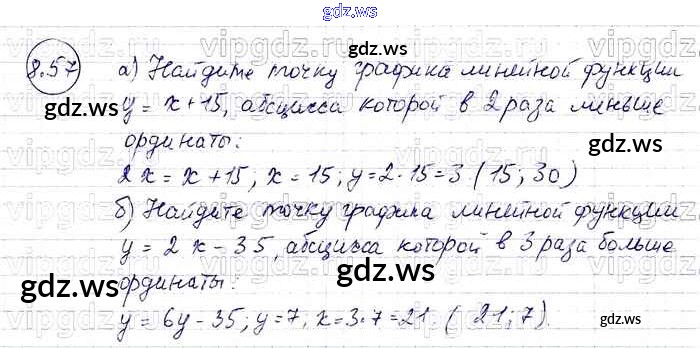 gdz.ws
8.57 а) Найдите точку графика линейной функции
y = x + 15, абсцисса которой в 2 раза меньше
ординаты:
2x = x + 15; x = 15; y = 2 · 15 = 3 (15; 30)
б) Найдите точку графика линейной функции
y = 2x - 35, абсцисса которой в 3 раза больше
ординаты:
y = 6y - 35; y = 7, x = 3 · 7 = 21 (21; 7).
gdz.ws
gdz.ws
gdz.ws
gdz.ws
gdz.ws
gdz.ws
gdz.ws